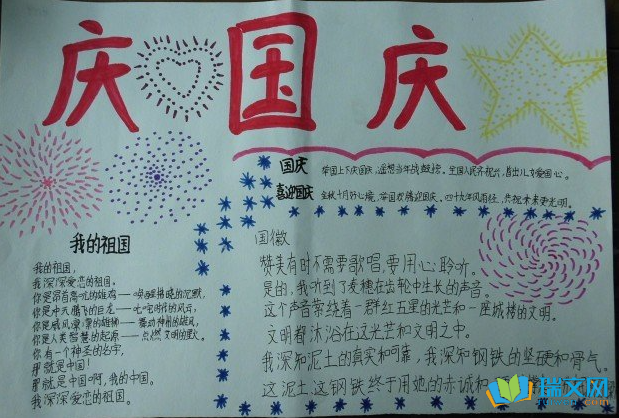 庆 国 庆
国庆
举国上下庆国庆,遥想当年战鼓擂。全国人民齐祝兴,皆出儿女爱国心。
喜迎国庆
金秋十月好心境,举国欢腾迎国庆。四十九年风雨径,共祝未来更光明。
我的祖国
我的祖国,
我深深爱恋的祖国。
你是昂首高吭的雄鸡——唤醒拂晓的沉默,
你是冲天腾飞的巨龙——叱咤时代的风云,
你是威风凛凛的雄狮——舞动神州的雄风,
你是人类智慧的起源——点燃文明的星火。
你有一个神圣的名字,
那就是中国!
那就是中国啊,我的中国。
我深深爱恋的祖国。
国徽
赞美有时不需要歌唱,要用心聆听。
是的,我听到了麦穗在齿轮中生长的声音。
这个声音萦绕着一群红五星的光芒和一座城楼的文明。
文明都沐浴在这光芒和文明之中。
我深知泥土的真实和可靠,我深知钢铁的坚硬和骨气。
这泥土这钢铁终于用她的赤诚和
瑞文网